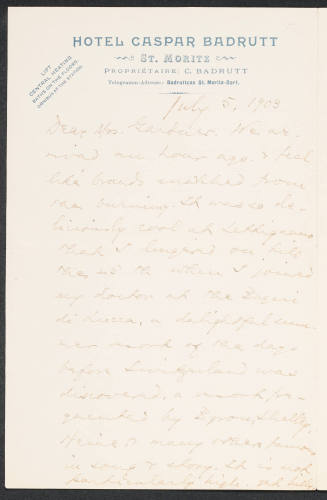 HOTEL CASPAR BADRUTT
ST. MORITZ
PROPRIÉTAIRE: C. BADRUTT
Telegramm-Adresse: Badruttcas St. Moritz-Dorf.
LIFT
CENTRAL HEATING
BATHS ON THE FLOORS.
OMNIBUS AT THE STATION.
July 5, 1903
Dear Mrs. Gardner. We ar-
rived an hour ago & feel
like brands snatched from
the burning. It was so de-
liciously cool at Settignano
that I lingered on till
the when I joined
my doctor at the Bagni
di Lucca, a delightful sum-
mer resort of the days
before Switzerland was
discovered, a resort fre-
quented by Byron, Shelley,
Heine & many others famous
in song & story. It is not
particularly high, yet